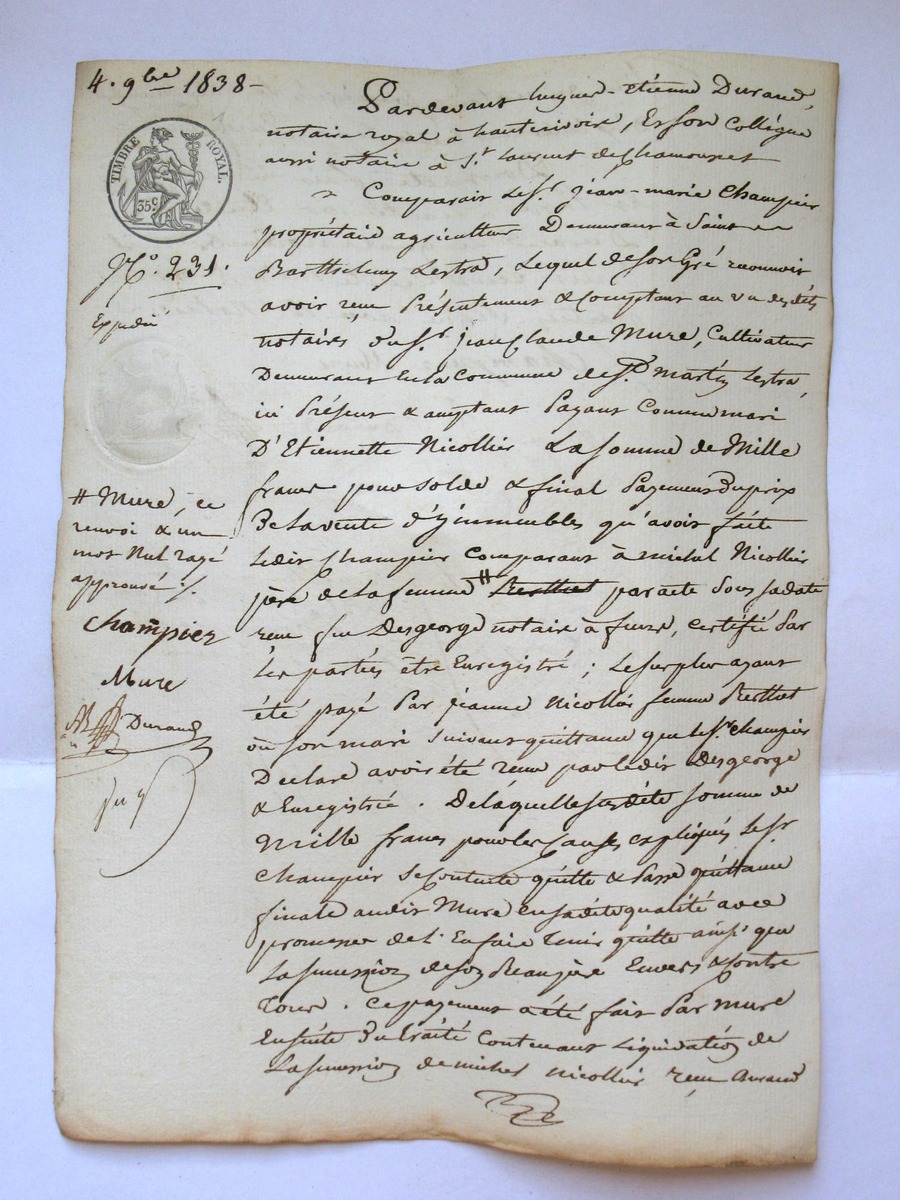 4. 9bre 1838 -
TIMBRE ROYAL.
35c
No. 231.
Expédié
# Mure, ce
renvoi & un
mot nul rayé
approuvé ./.
Champier
Mure
Durand
Pardevant hugues-étienne Durand,
notaire royal à hauterivoire, Et son Collégue
aussi notaire à St. Laurent de Chamousset
Comparait le Sr. jean-marie Champier
propriétaire agriculteur Demeurant à Saint
Barthelemy Lestra, Lequel de son Gré reconnoit
avoir reçu Présentement & Comptant au vu desdits
notaires Du Sr. jean Claude Mure, Cultivateur
Demeurant En la Commune de St. martin Lestra,
ici Présent & acceptant Payant Comme mari
D'Etiennette Nicollier La somme de Mille
francs pour solde & final Payement Du prix
De la vente d'jmmeubles qu'avoit faite
Ledit Champier Comparant à michel Nicollier
père de la femme # Berthet par acte Sous sa date
reçu par Desgeorge notaire à feurs, certifié Par
les parties être Enregistré ; Le surplus ayant
été payé Par jeanne Nicollier femme Berthet
ou son mari Suivant quittance que le Sr. champier
Declare avoir été reçue par ledit Desgeorge
& Enregistrée. De laquelle susdite somme de
Mille francs pour les Causes expliquées le Sr.
Champier se Contente quitte & Passe quittance
finale audit Mure En sa dite qualité avec
promesse de l'En faire tenir quitte ainsi que
La succession de son Beaupère Envers & Contre
Tous. Ce payement a été fait Par Mure
Ensuite Du traité Contenant Liquidation de
La succession de michel Nicollier reçu Durand